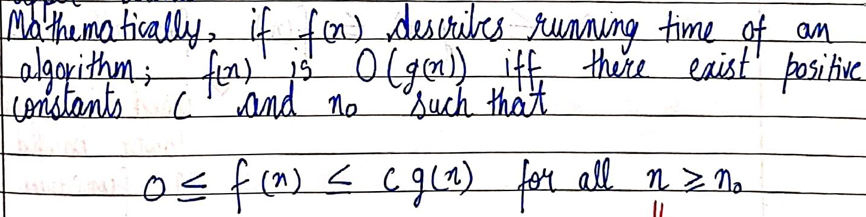 Mathematically, if f(n) describes running time of an
algorithm; f(n) is O(g(n)) iff there exist positive
constants C and n₀ such that
0 ≤ f(n) ≤ c g(n) for all n ≥ n₀